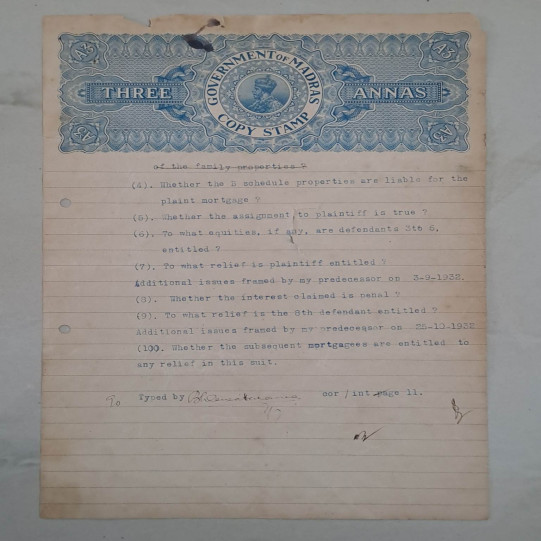 A3 GOVERNMENT OF MADRAS A3
THREE ANNAS
COPY STAMP
A3 A3
of the family properties ?
(4). Whether the B schedule properties are liable for the
plaint mortgage ?
(5). Whether the assignment to plaintiff is true ?
(6). To what equities, if any, are defendants 3to 6,
entitled ?
(7). To what relief is plaintiff entitled ?
Additional issues framed by my predecessor on 3-9-1932.
(8). Whether the interest claimed is penal ?
(9). To what relief is the 8th defendant entitled ?
Additional issues framed by my predecessor on 25-10-1932
(100. Whether the subsequent mortgagees are entitled to
any relief in this suit.
Typed by cor / int page 11.